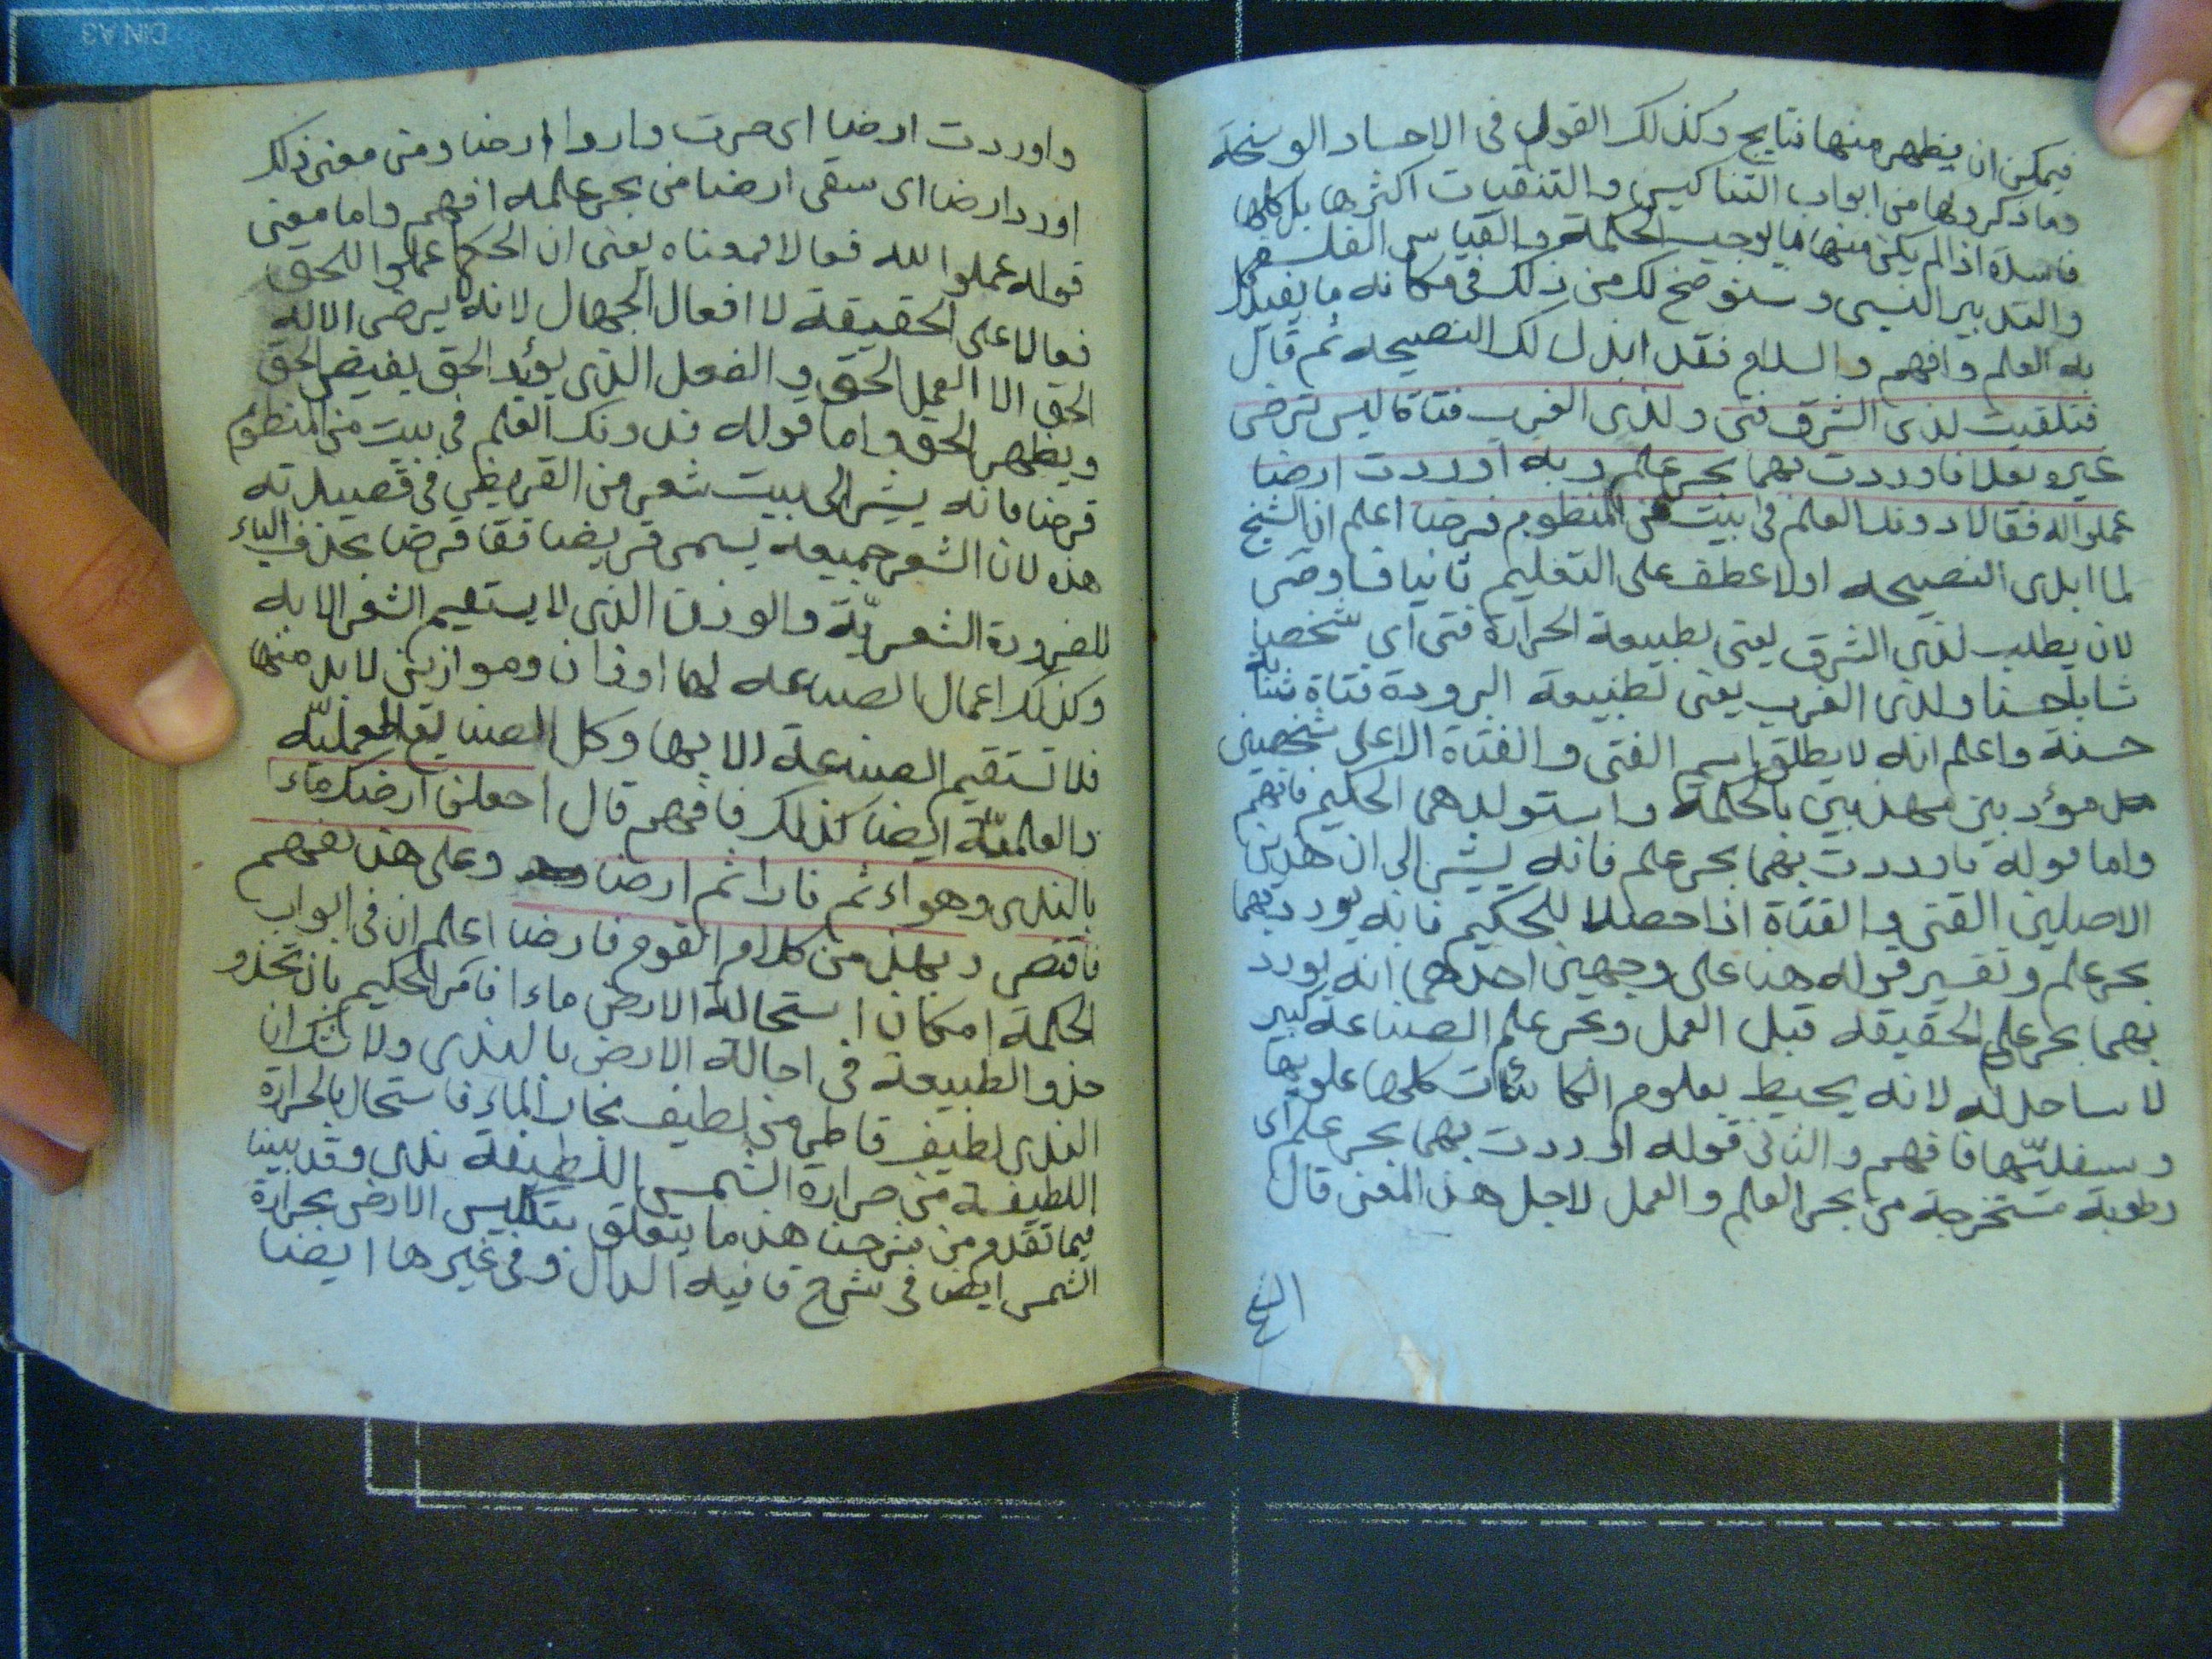 فيمكن ان يظهر منها نتايج وكذلك القول في الاجساد الوسخة
وما ذكروها من ابواب التناكيس والتنقيات اكثرها بل كلها
فاسدة اذ لم يكن منها ما يوجب الحكمة والقياس الفلسفي
والتدبير النسبى وسنوضح لك من ذلك في مكانه ما يفيدك
به العلم وافهم والسلام فقد ابذل لك النصيحه ثم قال
فتلقيت لذى الشرق فتى ولذى الغرب فتاة ليس ترضى
غيره بعلا فاوردت بهما بحر علم وبه اوردت ارضا
عملوا لله فقالا دونك العلم في بيت من المنظوم قرضا اعلم ان الشيخ
لما ابدى النصيحه اولا عطف على التعليم ثانيا فاوصى
لان يطلب لذى الشرق يعنى لطبيعة الحرارة فتى اى شخصا
شابا حسنا ولذى الغرب يعنى لطبيعة البرودة فتاة شابة
حسنة واعلم انه لا يطلق اسم الفتى والفتاة الا على شخصين
مؤدبين مهذبين بالحكمة واستولدهما الحكيم فافهم
واما قوله فاوردت بهما بحر علم فانه يشير الى ان هذين
الاصلين الفتى والفتاة اذا حصلا للحكيم فانه يورد بهما
بحر علم وتفسير قوله هنا على وجهين احدهما انه يورد
بهما بحر علم الحقيقه قبل العمل وبحر علم الصناعة كبير
لا ساحل له لانه يحيط بعلوم الكائنات كلها علويها
وسفليّها فافهم والثانى قوله اوردت بهما بحر علم اى
رطوبة مستخرجة من بحر العلم والعمل لاجل هذا المعنى قال
واوردت ارضا اى صرت واردا ارضا ومن معنى ذلك
اورد ارضا اى سقى ارضا من بحر علمه افهم واما معنى
قوله عملوا لله فعالا لمعناه يعنى ان الحكما عملوا للحق
فعالا على الحقيقة لا افعال الجهال لانه لا يرضى الاله
الحق الا العمل الحق والفعل الذى يؤيد الحق بفيض الحق
ويظهر الحق واما قوله فدونك العلم في بيت من المنظوم
قرضا فانه يشير الى بيت شعر من القريظ في قصيدته
هذه لان الشعر جميعه يسمى قريضا فقا قرضا بحذف الياء
للضرورة الشعريّة والوزن الذى لا يستقيم الشعر الا به
وكذلك اعمال الصناعه لها اوزان وموازين لا بد منها
فلا تستقيم الصناعة الا بها وكل الصنايع العمليّه
والعلميّة ايضا كذلك فافهم قال اجعلن ارضك ماءا
بالندى وهواء ثم نارا ثم ارضا وعلى هذا نفهم
فاقتص وبهذ من كلام القوم فارضا اعلم ان في ابواب
الحكمة امكان استحالة الارض ماءا فامر الحكيم بان تحذو
حذو الطبيعة في احالة الارض بالندى ولا شك ان
الندى لطيف قاطر من لطيف بخار الماء فاستحال بالحرارة
اللطيفة من حرارة الشمس اللطيفة ندى وقد بينا
فيما تقدم من شرحنا هذا ما يتعلق بتكليس الارض بحرارة
الشمس ايضا في شرح قافية الدال وفي غيرها ايضا